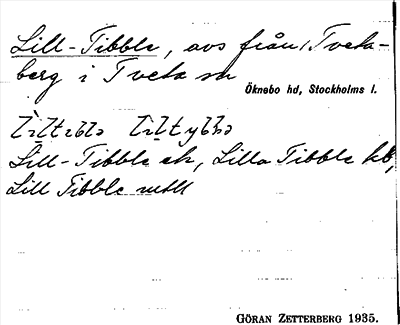 Lill-Tibble, avs från Tveta-
berg i Tveta sn
Öknebo hd, Stockholms l.
Lill-Tibble ek, Lilla Tibble kb,
Lill Tibble mtll
GÖRAN ZETTERBERG 1935.